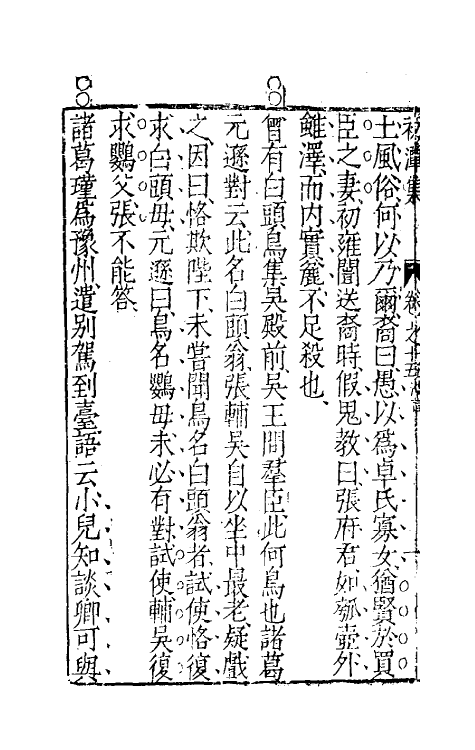 土風俗何以乃爾裔曰愚以為卓氏寡女猶賢於買
臣之妻初雍闓送裔時假鬼教曰張府君如瓠壺外
雖澤而内實麄不足殺也
曾有白頭鳥集吳殿前吳王問羣臣此何鳥也諸葛
元遜對云此名白頭翁張輔吳自以坐中最老疑戲
之因曰恪欺陛下未嘗聞鳥名白頭翁者試使恪復
求白頭母元遜曰鳥名鸚母未必有對試使輔吳復
求鸚父張不能答
諸葛瑾為豫州遣别駕到臺語云小兒知談卿可與